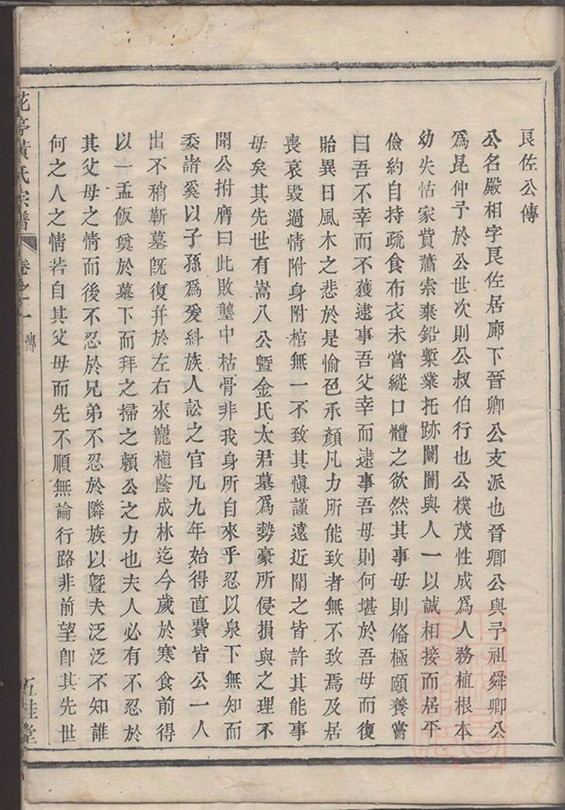 良佐公傳
公名嚴相字良佐居廊下晉卿公支派也晉卿公與予祖舜卿公
爲昆仲予於公世次則公叔伯行也公樸茂性成爲人務植根本
幼失怙家貲蕭索棄鉛槧業托跡闤闠與人一以誠相接而居平
儉約自持疏食布衣未嘗縱口體之欲然其事母則偹極頤養嘗
曰吾不幸而不獲逮事吾父幸而逮事吾母則何堪於吾母而復
貽異日風木之悲於是愉色承顏凡力所能致者無不致焉及居
喪哀毀過情附身附棺無一不致其愼謹遠近聞之皆許其能事
母矣其先世有嵩八公曁金氏太君墓爲勢豪所侵損與之理不
聞公拊膺曰此敗壟中枯骨非我身所自來乎忍以泉下無知而
委諸奚以子孫爲爰糾族人訟之官凡九年始得直費皆公一人
出不稍靳墓旣復幷於左右來龍植蔭成林迄今歲於寒食前得
以一盂飯奠於墓下而拜之掃之賴公之力也夫人必有不忍於
其父母之情而後不忍於兄弟不忍於隣族以曁夫泛泛不知誰
何之人之情若自其父母而先不順無論行路非前望卽其先世
花亭黃氏宗譜
卷之一
傳
五桂堂